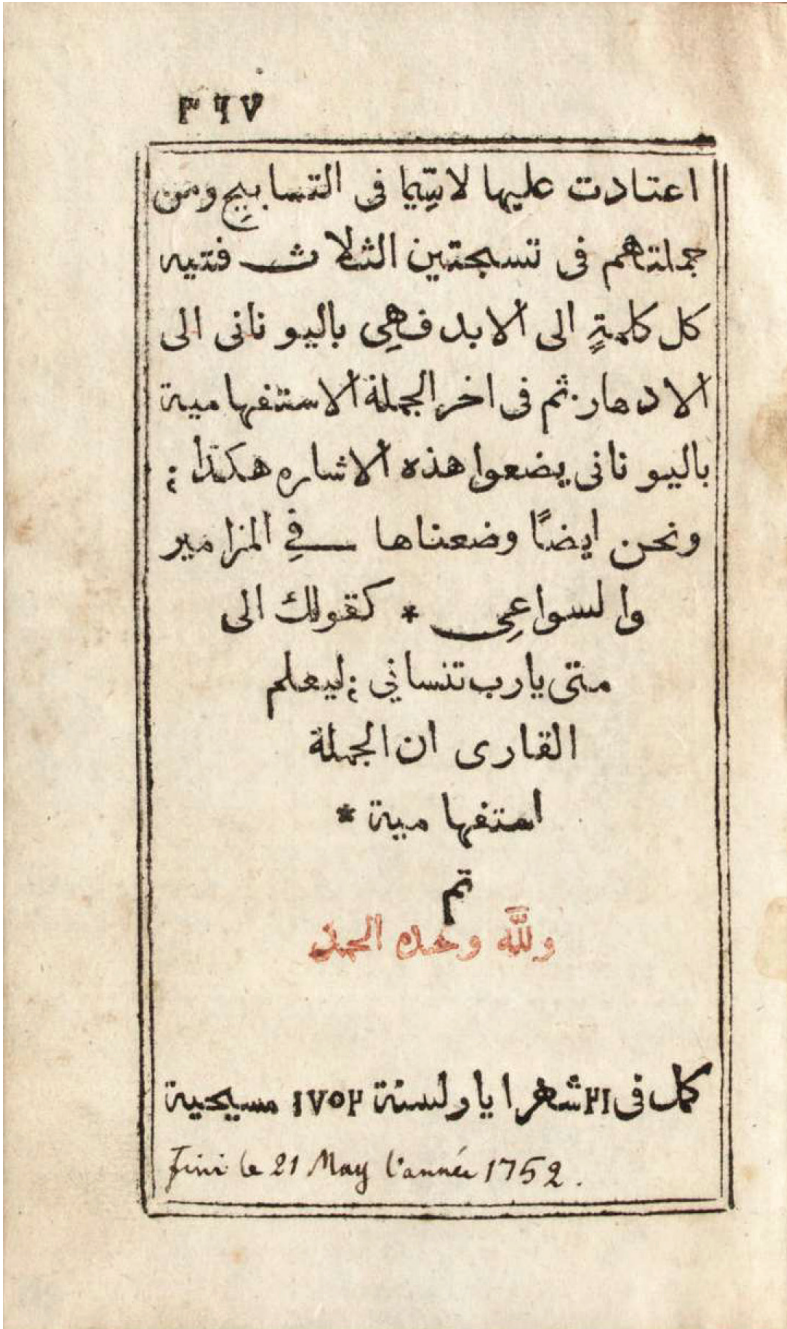 ٣٦٧
اعتادت عليها لاسِيّما فى التسابيح ومن
جملتهم فى تسبحتين الثلاث فتيه
كل كلمةٍ الى الابد فهِى باليونانى الى
الادهار. ثم فى اخر الجملة الاستفهامية
باليونانى يضعوا هذه الاشاره هكذا ;
ونحن ايضًا وضعناها فِي المزامير
والسواعِى * كقولك الى
متى يارب تنساني ; ليعلم
القارى ان الجملة
استفهامية *
تم
ولله وحده الحمد
كمل فى ٢١ شهر ايار لسنة ١٧٥٢ مسيحية
fini le 21 May l'année 1752.